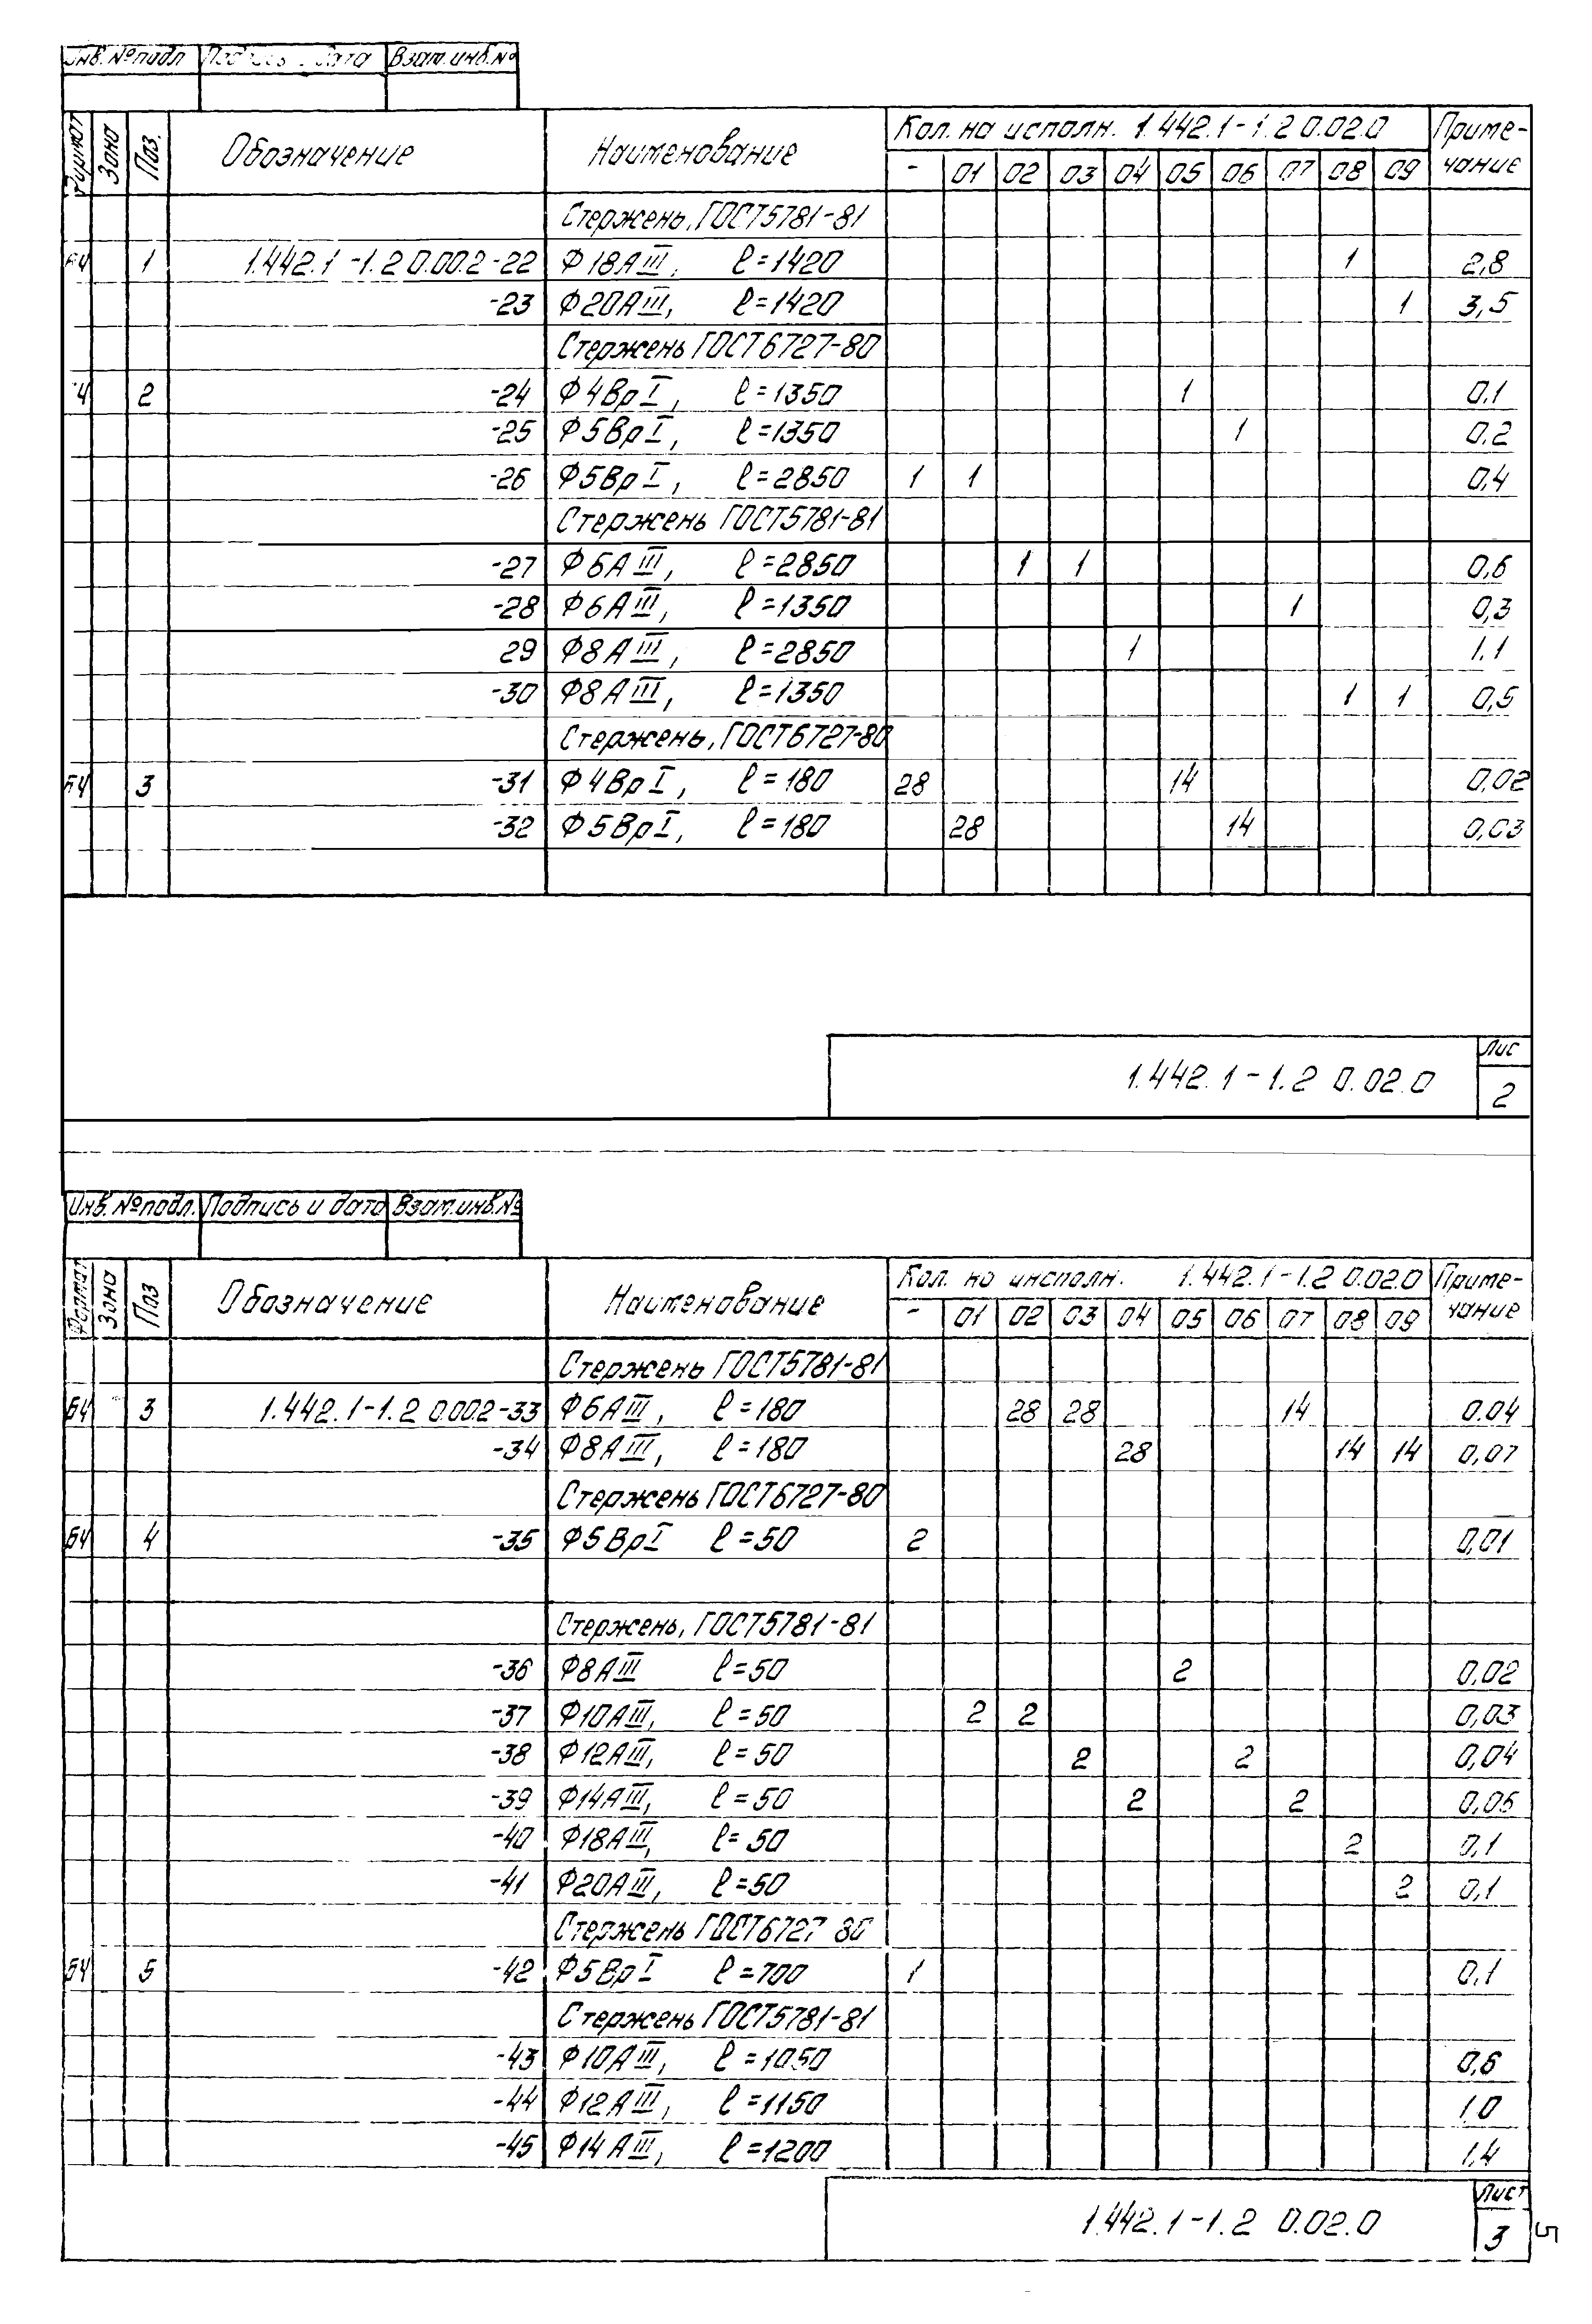 Инв. №подл Подпись и дата Взам.инв.№
Формат Зона Поз. Обозначение Наименование Кол. на исполн. 1.442.1-1.2 0.02.0 Приме-
- 01 02 03 04 05 06 07 08 09 чание
Стержень, ГОСТ5781-81
БЧ 1 1.442.1-1.2 0.00.2-22 Ф18АIII, ℓ=1420 1 2,8
-23 Ф20АIII, ℓ=1420 1 3,5
Стержень ГОСТ6727-80
Ч 2 -24 Ф4ВрI, ℓ=1350 1 0.1
-25 Ф5ВрI, ℓ=1350 1 0.2
-26 Ф5ВрI, ℓ=2850 1 1 0,4
Стержень ГОСТ5781-81
-27 Ф6АIII, ℓ=2850 1 1 0,6
-28 Ф6АIII, ℓ=1350 1 0,3
29 Ф8АIII, ℓ=2850 1 1.1
-30 Ф8АIII, ℓ=1350 1 1 0,5
Стержень, ГОСТ6727-80
БЧ 3 -31 Ф4ВрI, ℓ=180 28 14 0,02
-32 Ф5ВрI, ℓ=180 28 14 0,03
1.442.1-1.2 0.02.0 Лис
2
Инв. №подл. Подпись и дата Взам.инв.№
Формат Зона Поз Обозначение Наименование Кол. на инсполн. 1.442.1-1.2 0.02.0 Приме-
- 01 02 03 04 05 06 07 08 09 чание
Стержень ГОСТ5781-81
БЧ 3 1.442.1-1.2 0.00.2-33 Ф6АIII, ℓ=180 28 28 14 0.04
-34 Ф8АIII, ℓ=180 28 14 14 0,07
Стержень ГОСТ6727-80
БЧ 4 -35 Ф5ВрI ℓ=50 2 0,01
Стержень, ГОСТ5781-81
-36 Ф8АIII ℓ=50 2 0.02
-37 Ф10АIII, ℓ=50 2 2 0,03
-38 Ф12АIII, ℓ=50 2 2 0,04
-39 Ф14АIII, ℓ=50 2 2 0,06
-40 Ф18АIII, ℓ=50 2 0,1
-41 Ф20АIII, ℓ=50 2 0,1
Стержень ГОСТ6727 80
БЧ 5 -42 Ф5ВрI ℓ=700 1 0,1
Стержень ГОСТ5781-81
-43 Ф10АIII, ℓ=1050 0,6
-44 Ф12АIII, ℓ=1150 1,0
-45 Ф14АIII, ℓ=1200 1,4
1.442.1-1.2 0.02.0 Лист
3
5